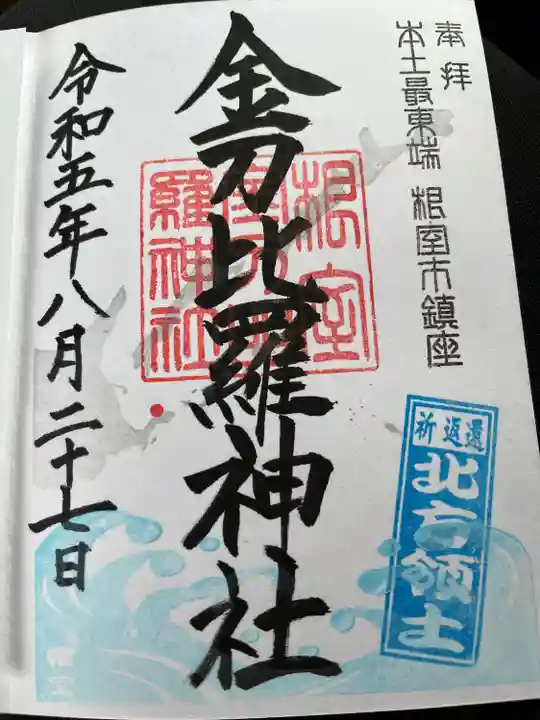 奉拝
本土最東端 根室市鎮座
祈返還
北方領土
金刀比羅神社
根室
羅神社
令和五年八月二十七日